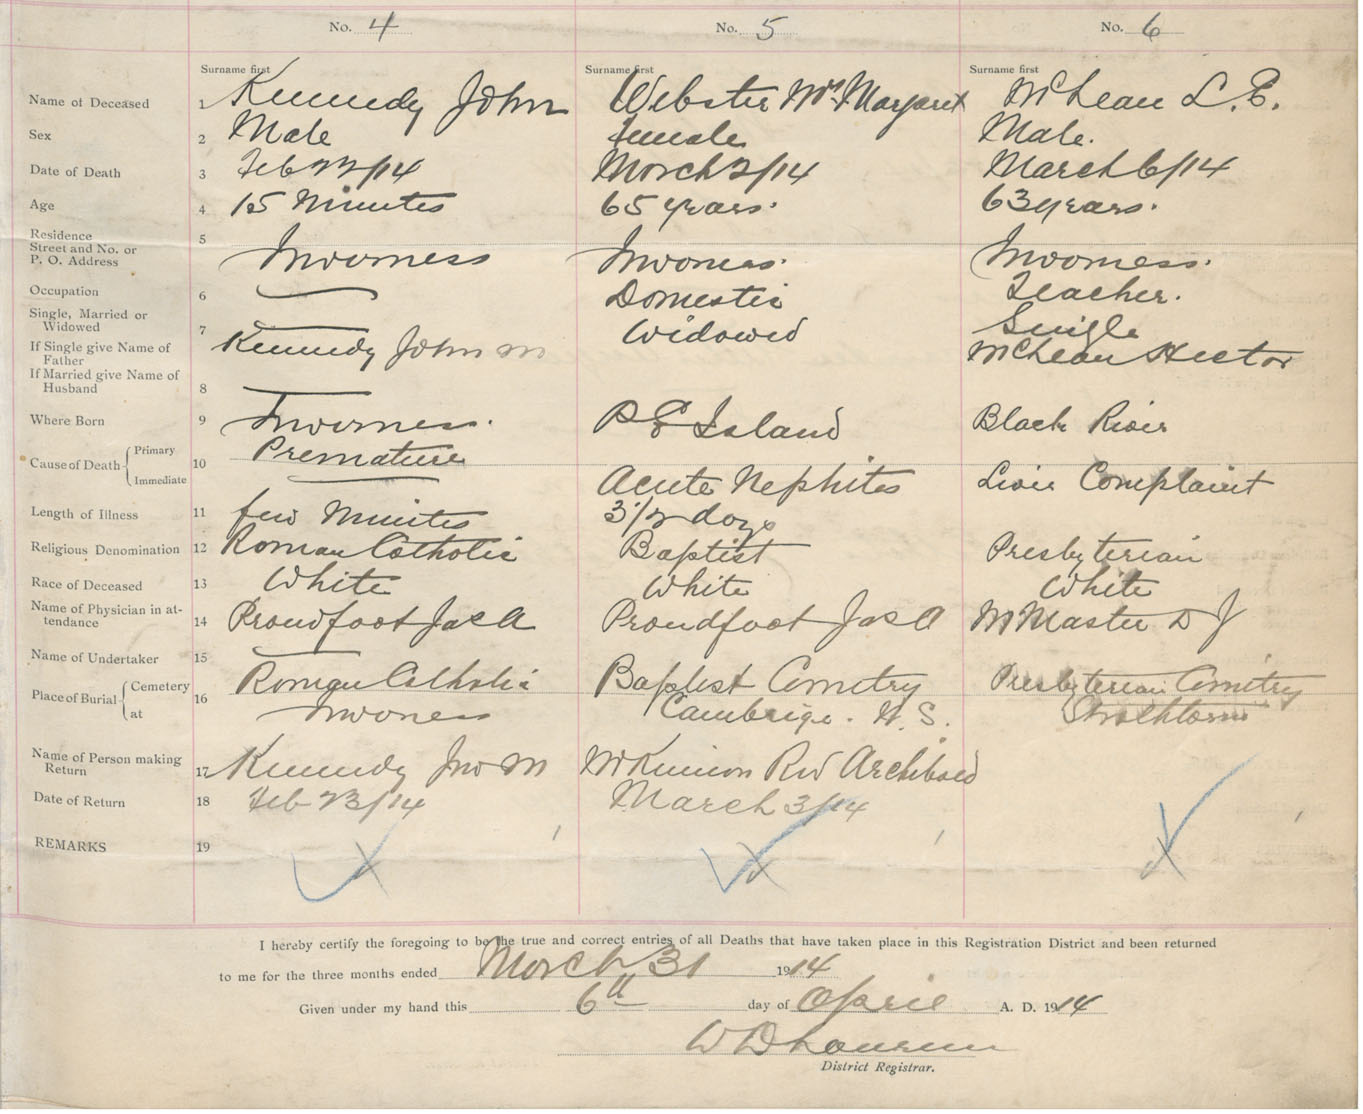 No. 4 No. 5 No. 6
Surname first Surname first Surname first
Name of Deceased 1 Kennedy John Webster Mrs Margaret McLean L. E.
Sex 2 Male female Male.
Date of Death 3 Feb 22/14 March 2/14 March 6/14
Age 4 15 Minutes 65 years. 63 years.
Residence
Street and No. or 5
P. O. Address Inverness Inverness. Inverness.
Occupation 6 Domestic Teacher.
Single, Married or
Widowed 7 Widowed Single
If Single give Name of
Father Kennedy John M McLean Hector
If Married give Name of
Husband 8
Where Born 9 Inverness. P E Island Black River
Cause of Death Primary 10 Premature
Immediate Acute Nephites Liver Complaint
Length of Illness 11 few Minutes 3 1/2 days
Religious Denomination 12 Roman Catholic Baptist Presbyterian
Race of Deceased 13 White White White
Name of Physician in at-
tendance 14 Proudfoot Jas A Proudfoot Jas A McMaster D J
Name of Undertaker 15
Place of Burial Cemetery 16 Roman Catholic Baptist Cemetry Presbyterian Cemetry
at Inverness Cambrige. N. S.
Name of Person making
Return 17 Kennedy Jno M McKinnon Rev Archibald
Date of Return 18 Feb 23/14 March 3/14
REMARKS 19
I hereby certify the foregoing to be the true and correct entries of all Deaths that have taken place in this Registration District and been returned
to me for the three months ended March 31 1914
Given under my hand this 6th day of April A. D. 1914
W D
District Registrar.